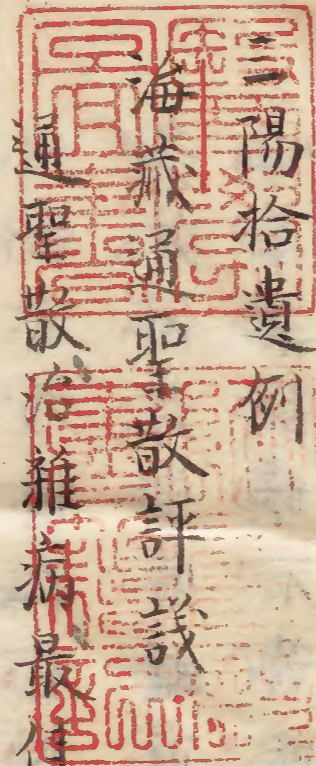 三陽拾遺例
海藏通聖散評議
通聖散治雜病最佳